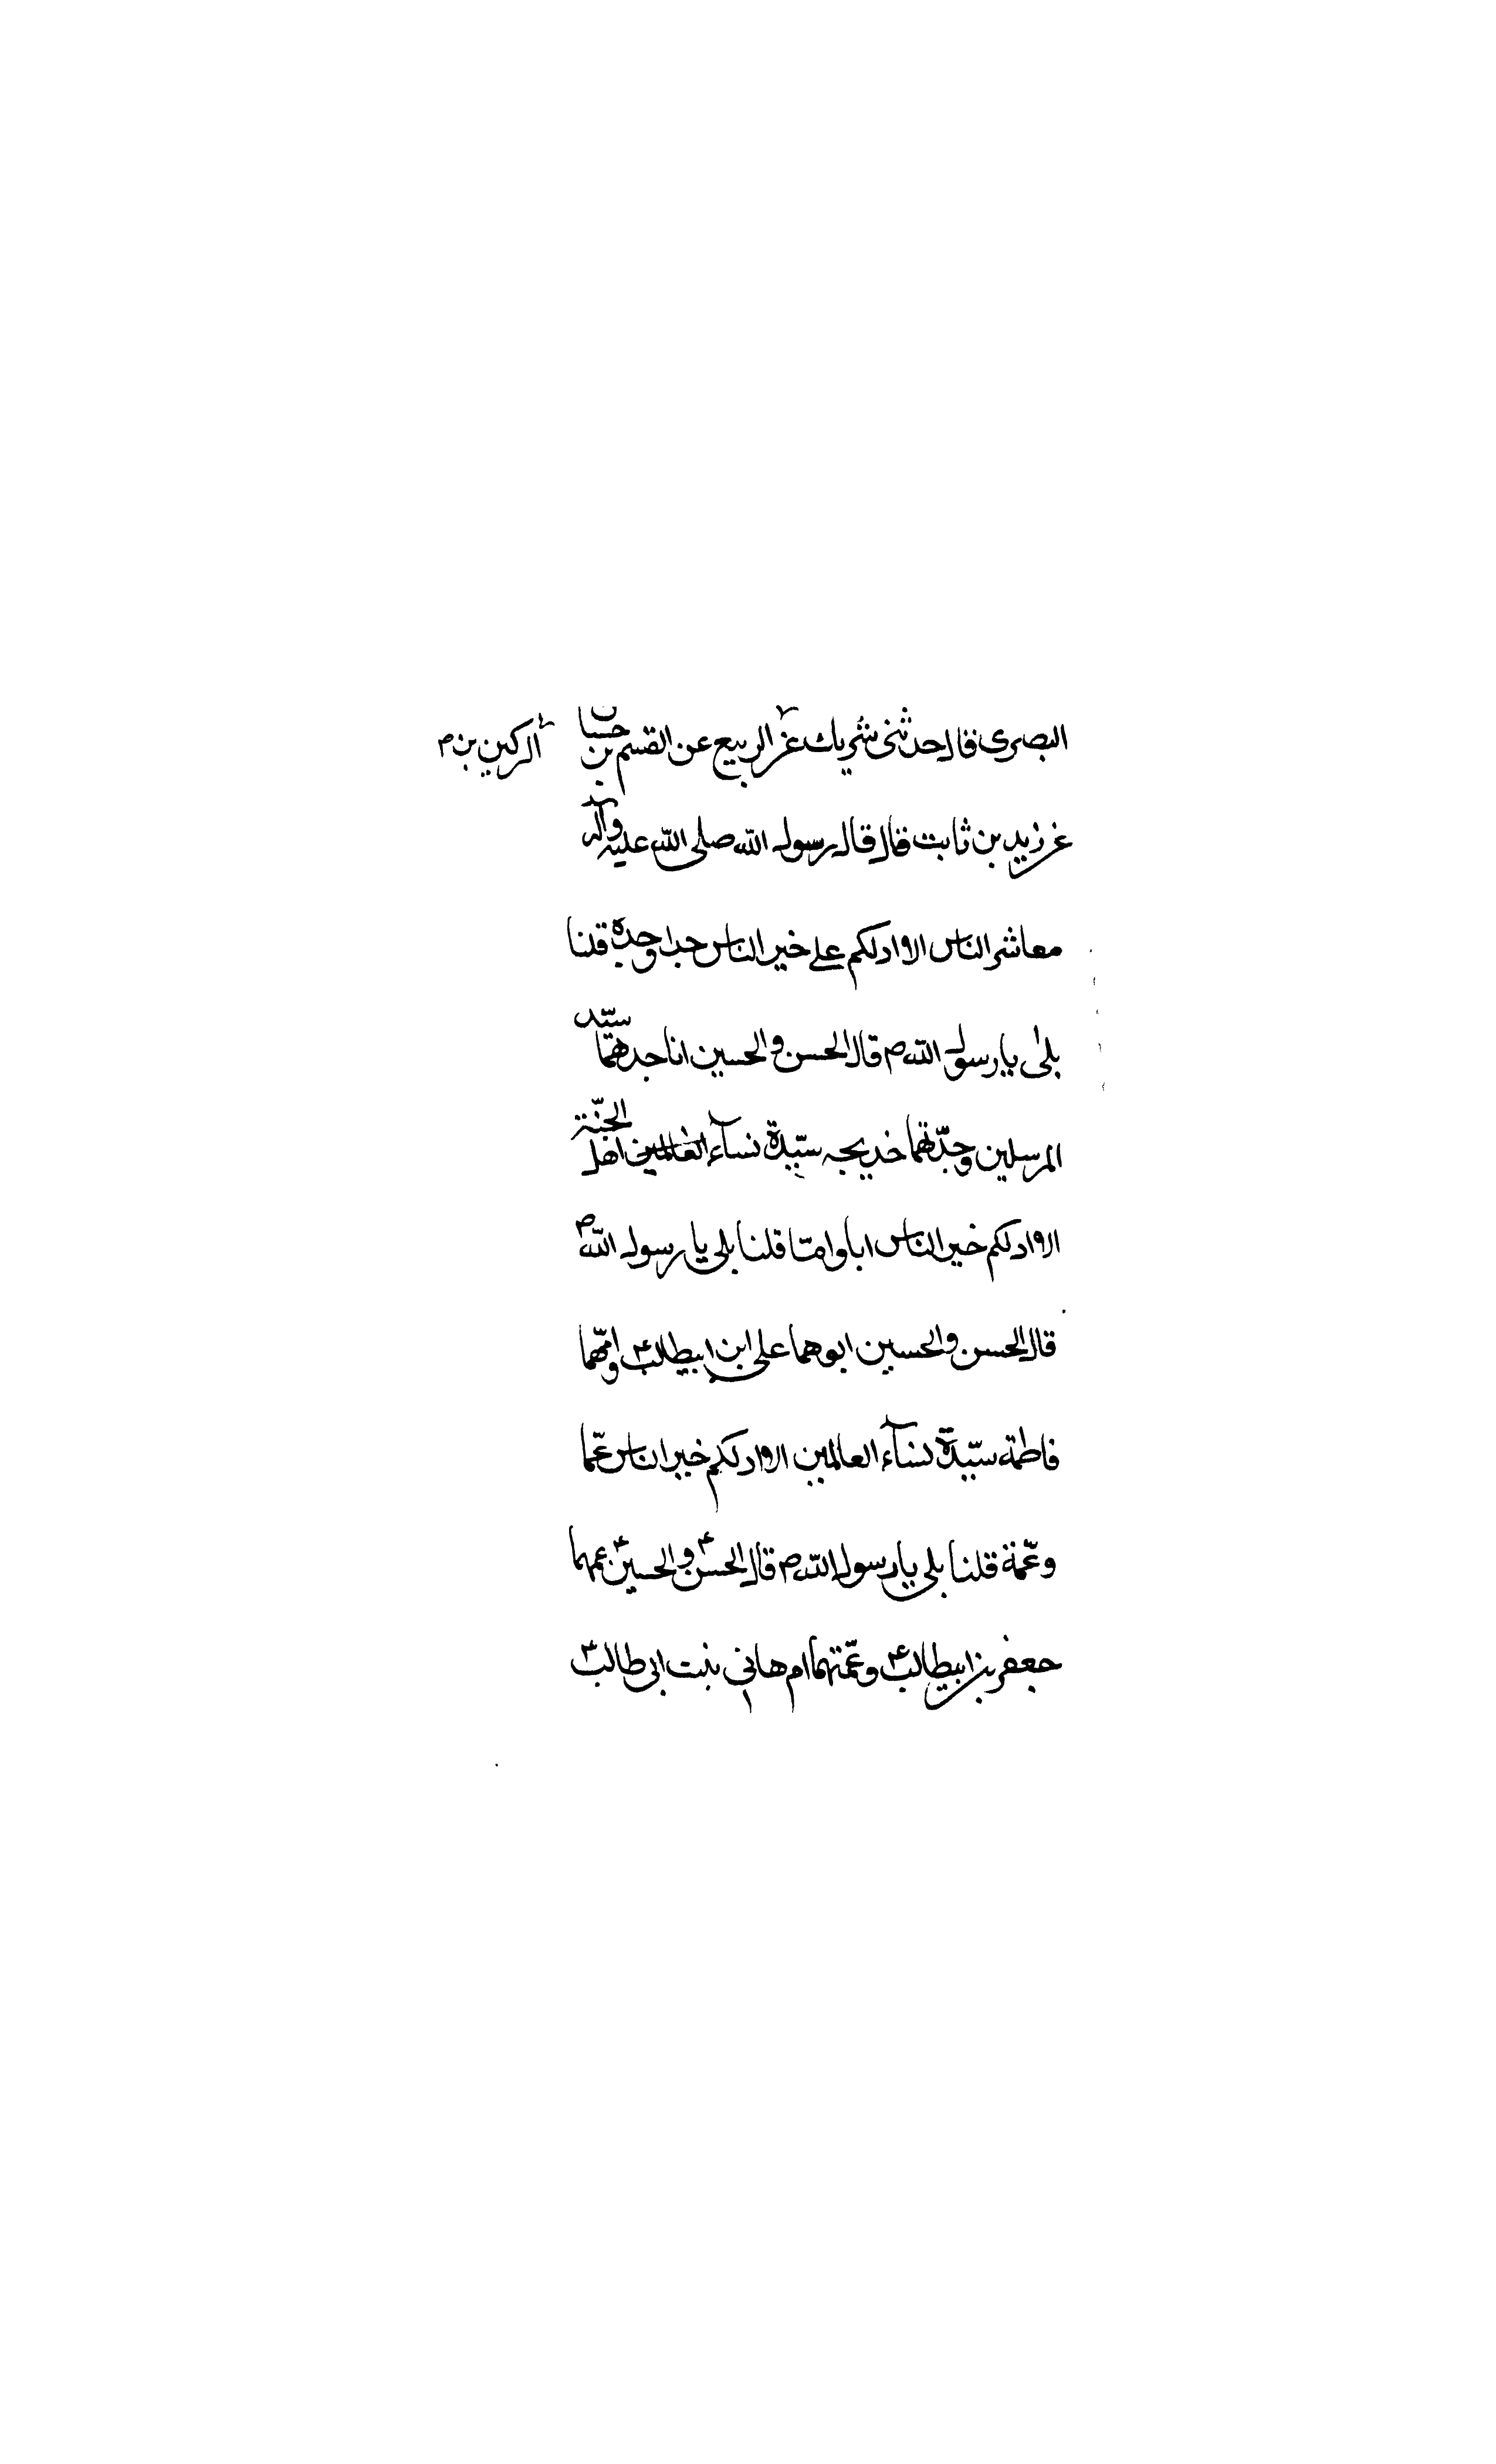 البصرى قال حدثنى شريك عن الربيع عن القسم بن حسان الركين بن م
عن زيد بن ثابت قال قال رسول الله صلى الله عليه وآله
معاشر الناس الا ادلكم على خير الناس جدا وجدة قلنا
بلى يا رسول الله ص قال الحسن والحسين انا جدهما سيّد
المرسلين وجدّتهما خديجه سيّدة نسآء العالمين اهل الجنّة
الا ادلكم خير الناس ابا وامّا قلنا بلى يا رسول الله ص
قال الحسن والحسين ابوهما على ابن ابيطالب ع وامّهما
فاطمة سيّدة نسآء العالمين الا ادلكم خير الناس عمّا
وعمّة قلنا بلى يا رسول الله ص قال الحسن ع والحسين ع عمهما
جعفر بن ابيطالب ع وعمّتهما ام هانى بنت ابى طالب ع